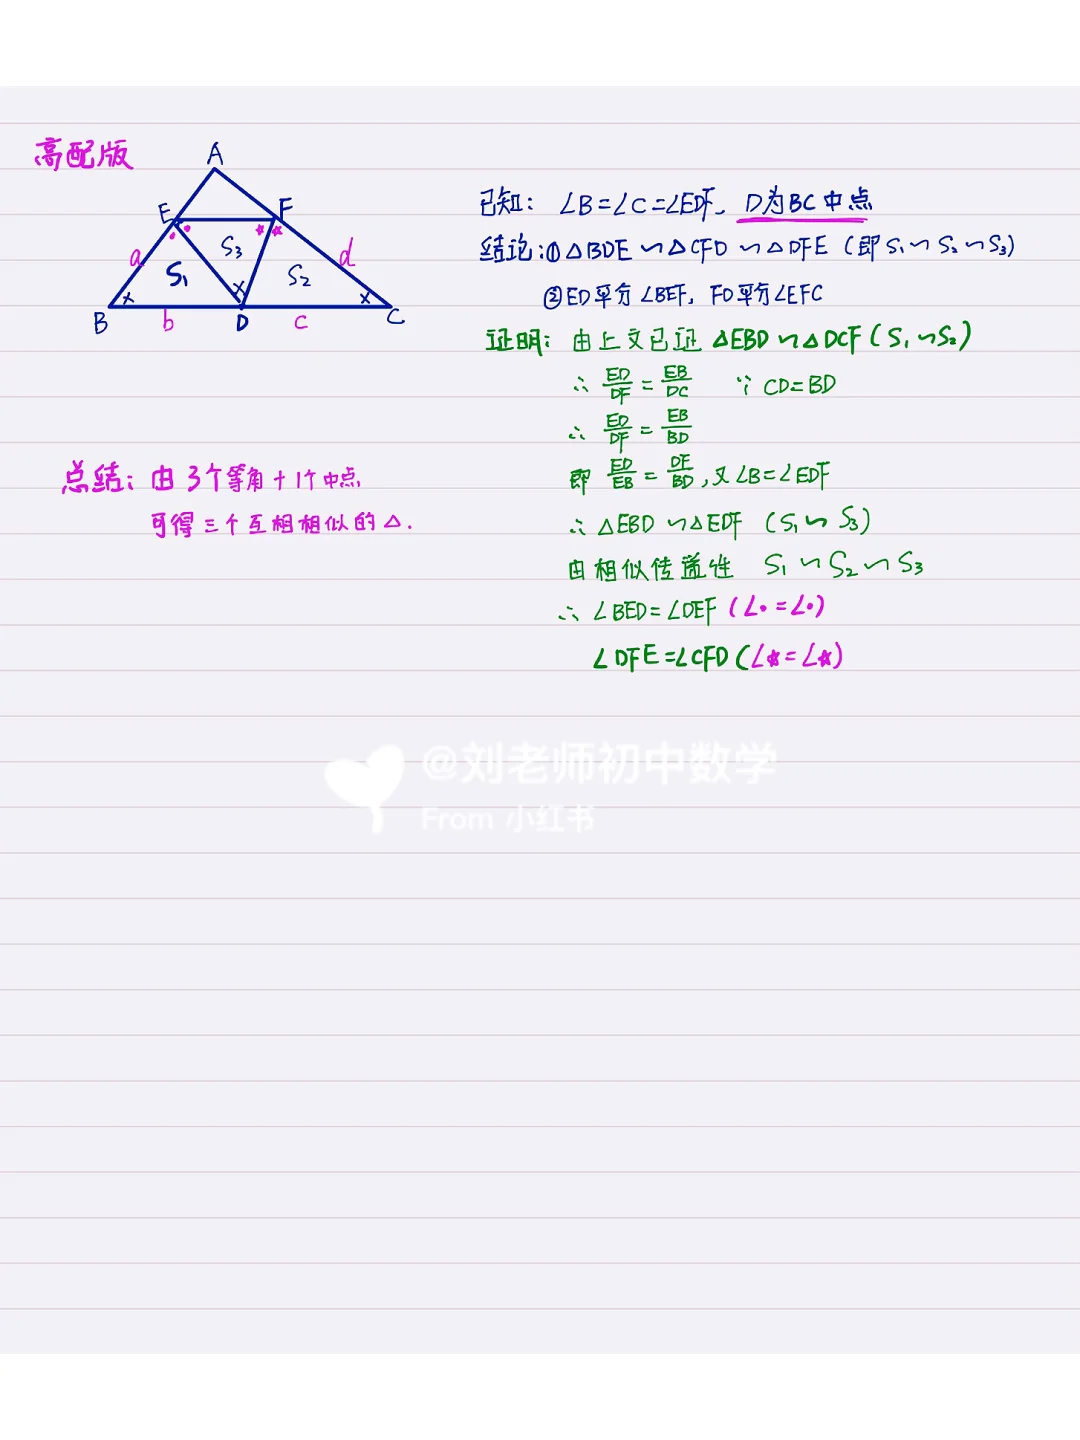 高配版
A
E
F
a
S₃
d
S₁
S₂
B
b
D
c
C
已知: ∠B=∠C=∠EDF, D为BC中点
结论:① △BDE∽△CFD∽△DFE (即S₁∽S₂∽S₃)
②ED平分∠BEF, FD平分∠EFC
证明: 由上文已证 △EBD∽△DCF(S₁∽S₂)
∴ ED/DF = EB/DC ∵ CD=BD
∴ ED/DF = EB/BD
即 ED/EB = DF/BD, 又∠B=∠EDF
∴ △EBD∽△EDF (S₁∽S₃)
由相似传递性 S₁∽S₂∽S₃
∴ ∠BED=∠DEF (∠•=∠•)
∠DFE=∠CFD(∠☆=∠☆)
总结: 由3个等角+1个中点
可得三个互相相似的△.
@刘老师初中数学
From 小红书